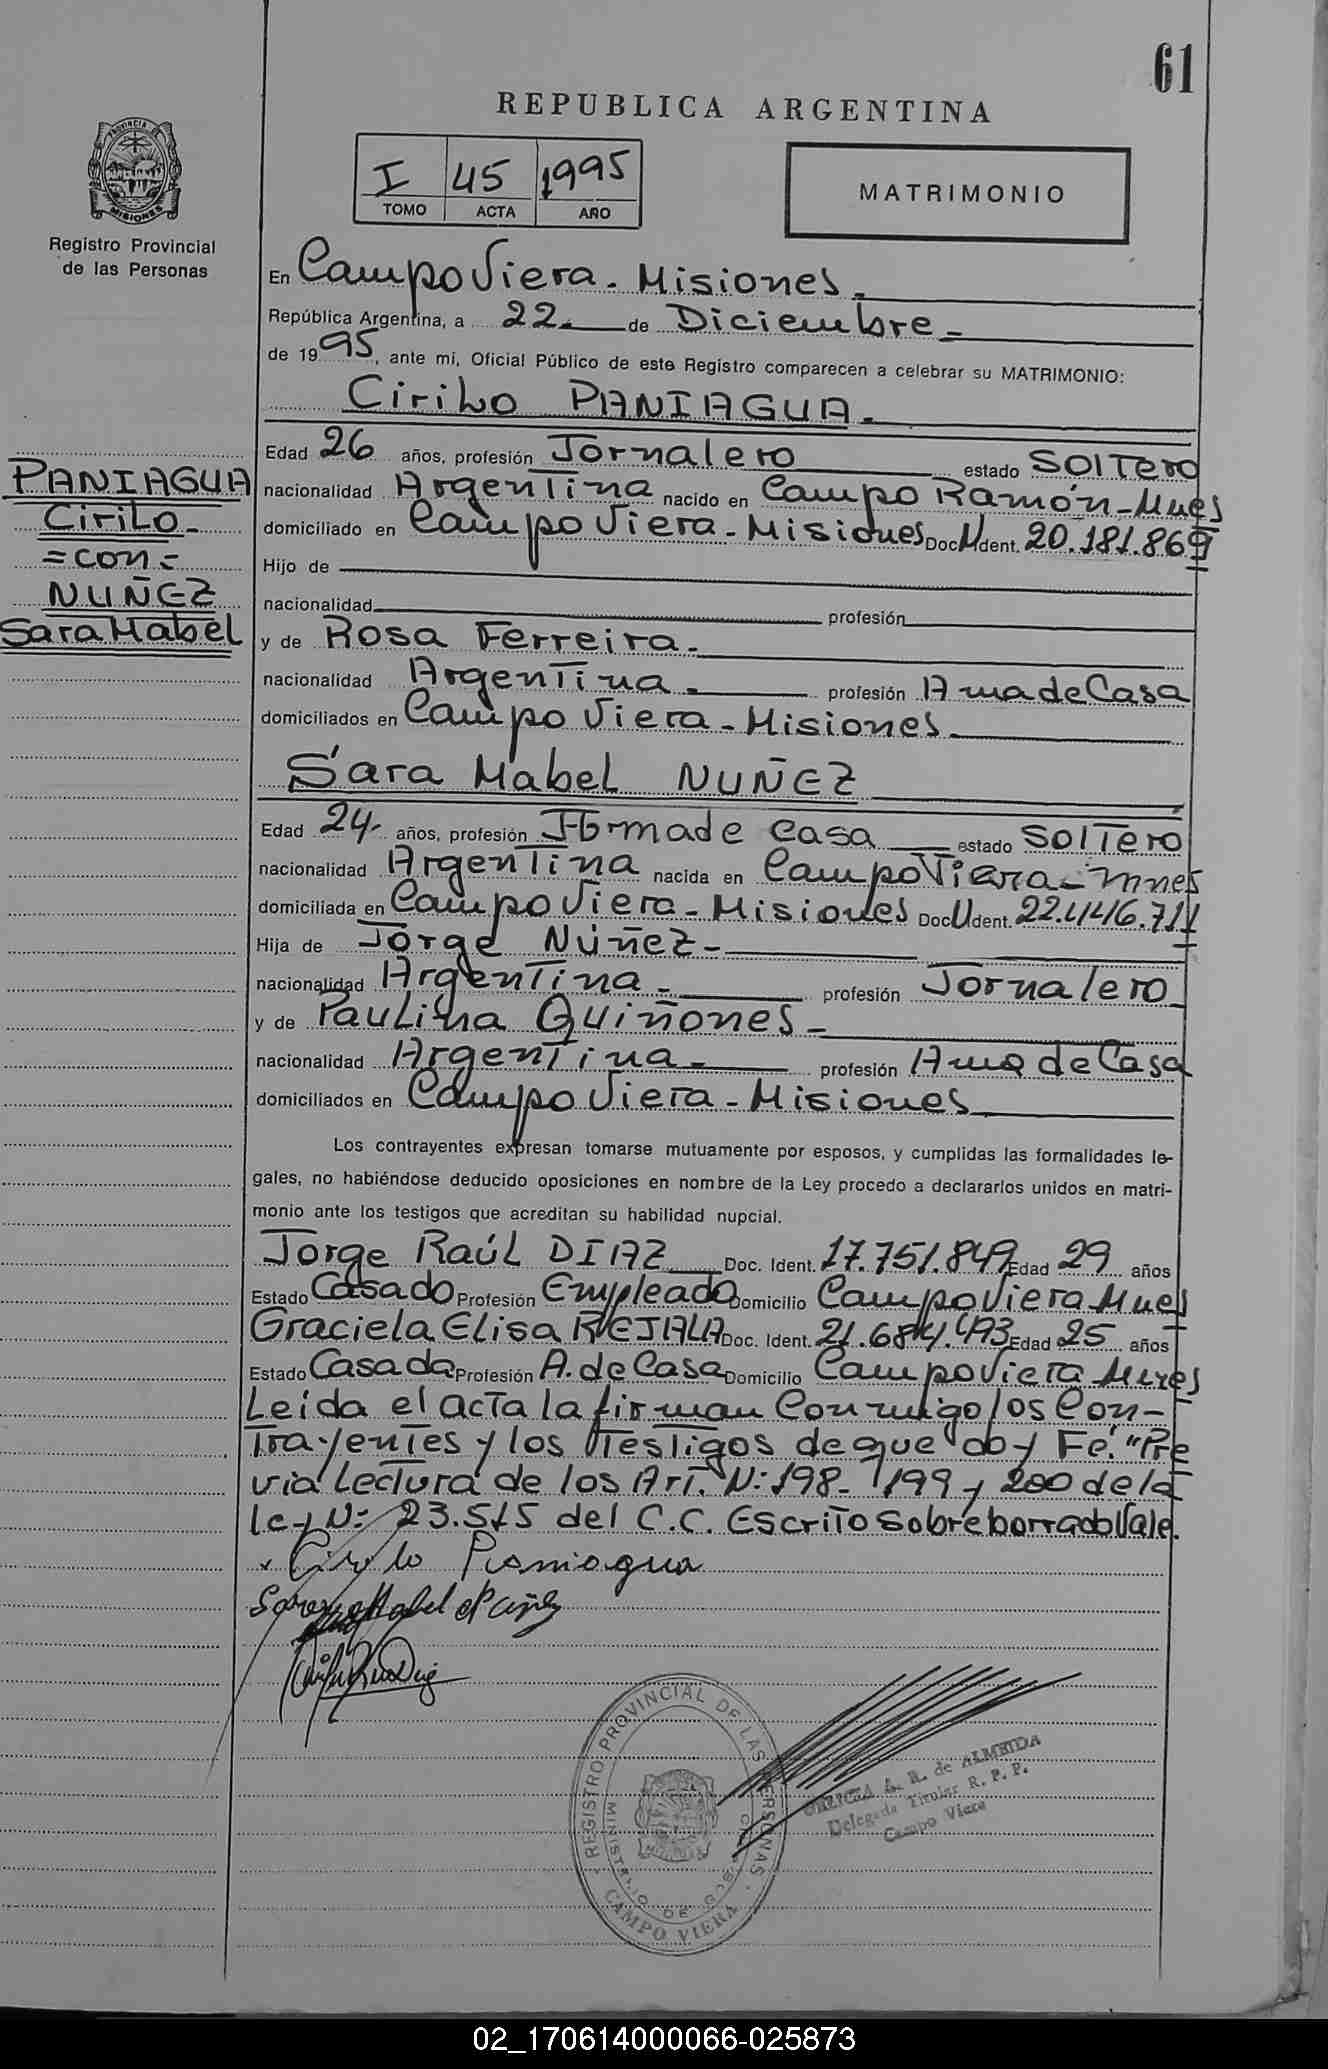 61
REPUBLICA ARGENTINA
I 45 1995
TOMO ACTA AÑO
MATRIMONIO
PROVINCIA DE
MISIONES
Registro Provincial
de las Personas
En Campo Viera - Misiones -
República Argentina, a 22 - de Diciembre -
de 1995, ante mi, Oficial Público de este Registro comparecen a celebrar su MATRIMONIO:
Cirilo PANIAGUA -
PANIAGUA
Cirilo -
= con =
NUÑEZ
Sara Mabel
Edad 26 años, profesión Jornalero estado Soltero
nacionalidad Argentina nacido en Campo Ramón - Mnes
domiciliado en Campo Viera - Misiones Doc U Ident. 20.181.869
Hijo de
nacionalidad profesión
y de Rosa Ferreira -
nacionalidad Argentina - profesión Ama de Casa
domiciliados en Campo Viera - Misiones
Sara Mabel NUÑEZ
Edad 24 - años, profesión Ama de Casa estado Soltero
nacionalidad Argentina nacida en Campo Viera - Mnes
domiciliada en Campo Viera - Misiones Doc U Ident. 22.446.711
Hija de Jorge Núñez -
nacionalidad Argentina - profesión Jornalero
y de Paulina Quiñones -
nacionalidad Argentina - profesión Ama de Casa
domiciliados en Campo Viera - Misiones
Los contrayentes expresan tomarse mutuamente por esposos, y cumplidas las formalidades le-
gales, no habiéndose deducido oposiciones en nombre de la Ley procedo a declararlos unidos en matri-
monio ante los testigos que acreditan su habilidad nupcial.
Jorge Raúl DIAZ Doc. Ident. 17.751.849 Edad 29 años
Estado Casado Profesión Empleado Domicilio Campo Viera Mnes
Graciela Elisa REJALA Doc. Ident. 21.684.473 Edad 25 años
Estado Casada Profesión A. de Casa Domicilio Campo Viera Mnes
Leída el acta la firman Conmigo los Con-
trayentes y los Testigos de que doy Fé. "Pre
via Lectura de los Art. N: 198 - 199 y 200 de la
ley N: 23.515 del C.C. Escrito sobre borrado Vale.
x Cirilo Paniagua
Sara Mabel Nuñez
REGISTRO PROVINCIAL DE LAS PERSONAS
MINISTERIO DE GOBIERNO
CAMPO VIERA
A. R. de ALMEIDA
Delegada Titular R. P. P.
Campo Viera
02_170614000066-025873